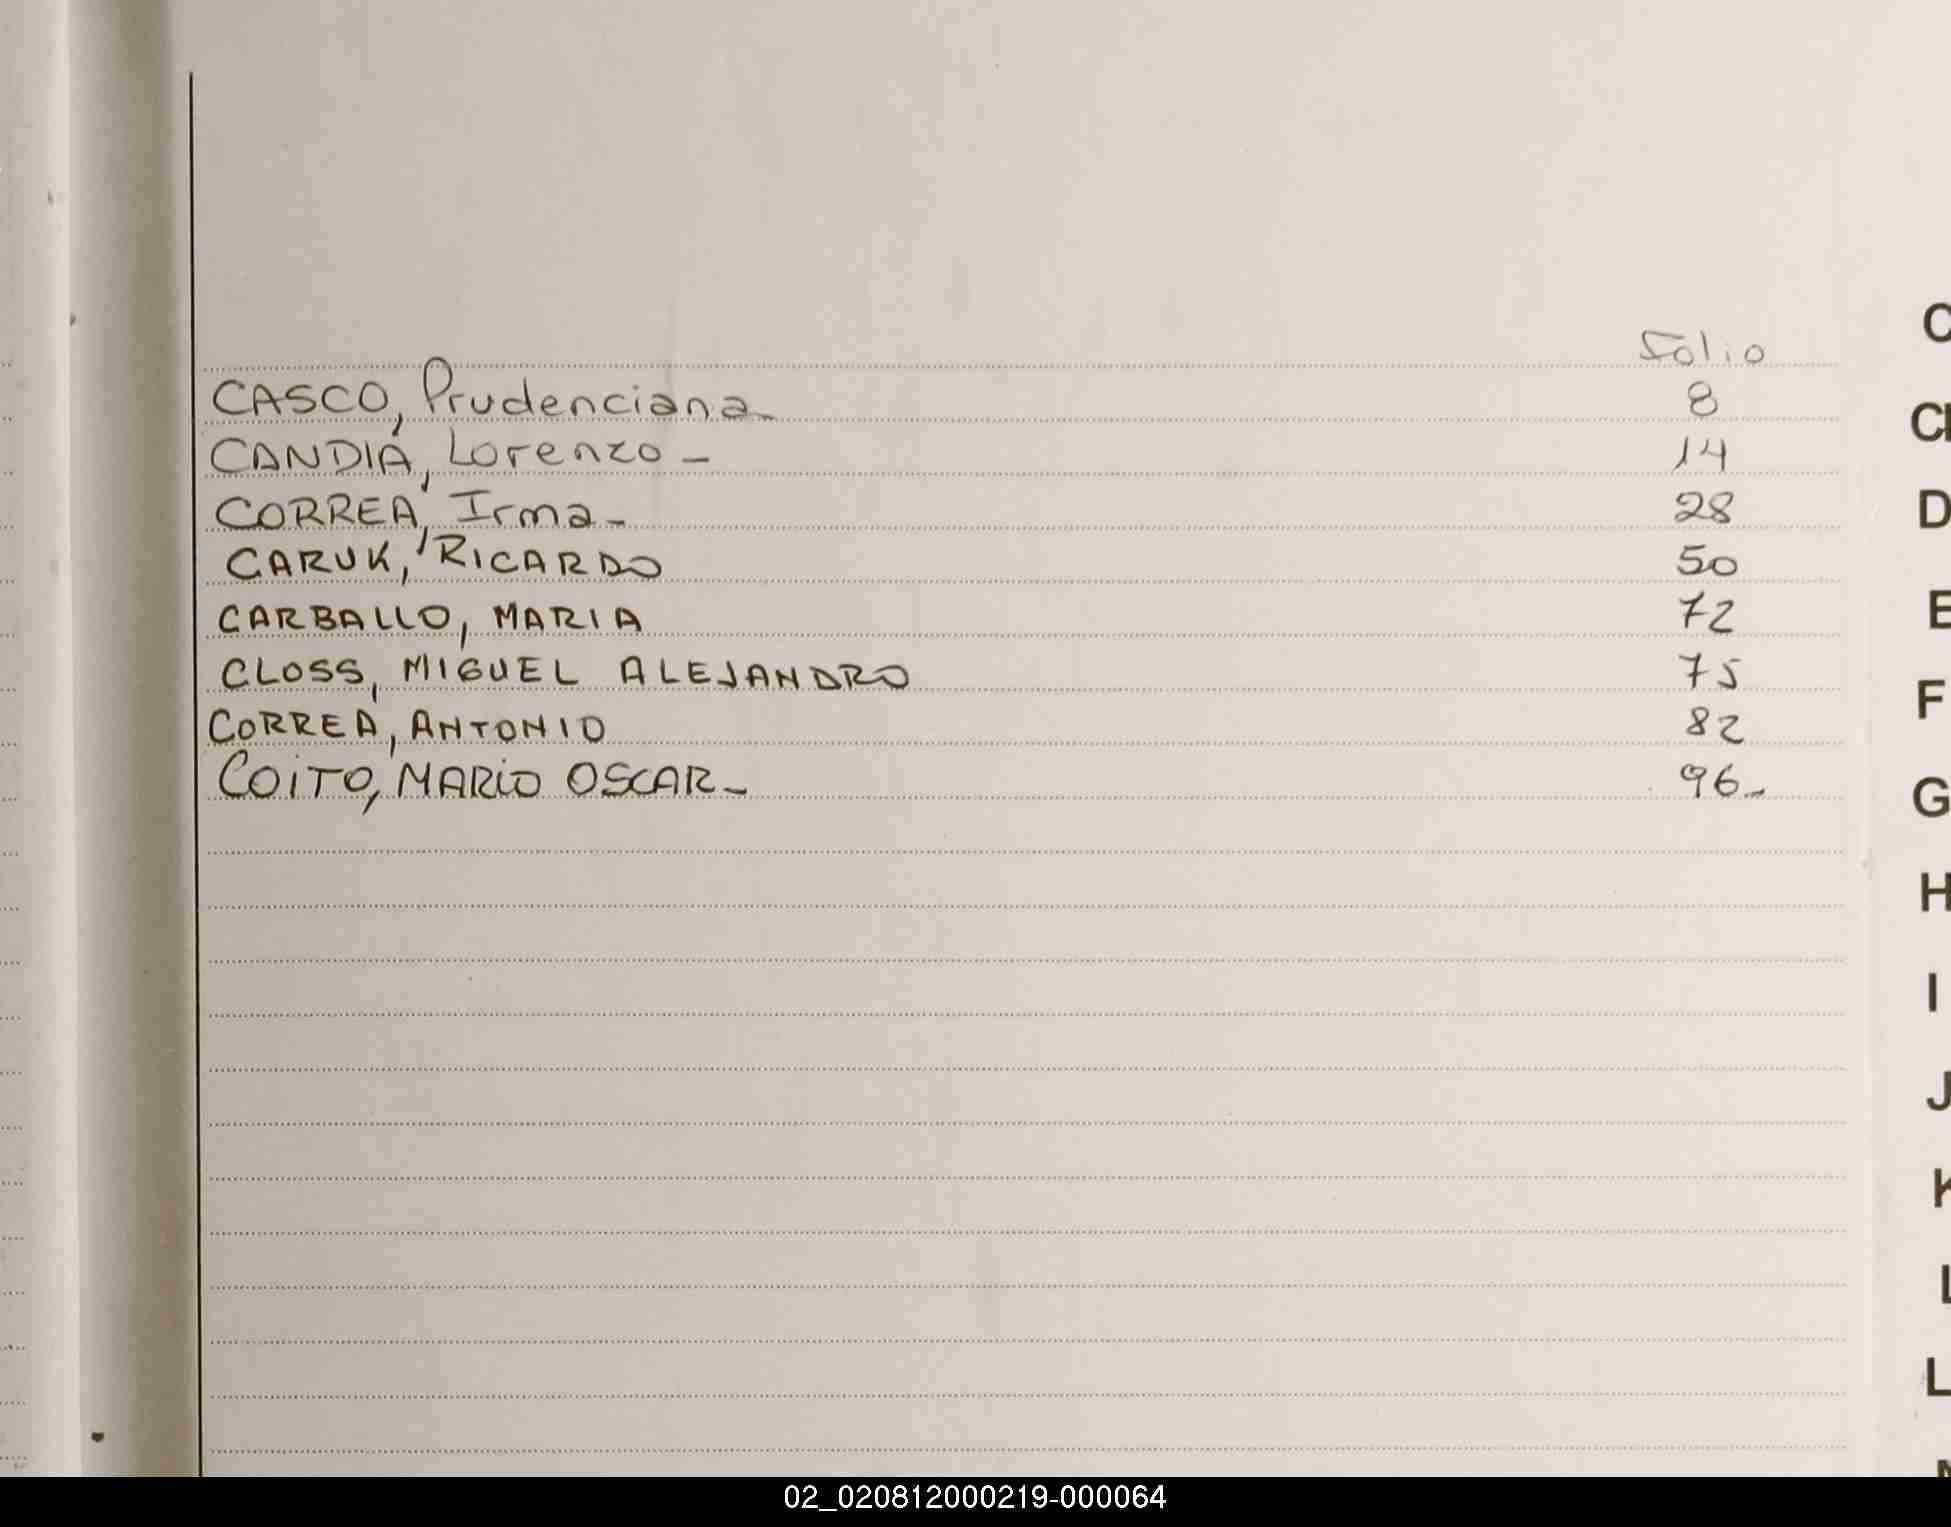 Folio
CASCO, Prudenciana 8
CANDIA, Lorenzo - 14
CORREA, Irma - 28
CARUK, RICARDO 50
CARBALLO, MARIA 72
CLOSS, MIGUEL ALEJANDRO 75
CORREA, ANTONIO 82
COITO, MARIO OSCAR - 96 -
C
D
E
F
G
H
I
J
K
L
02_020812000219-000064